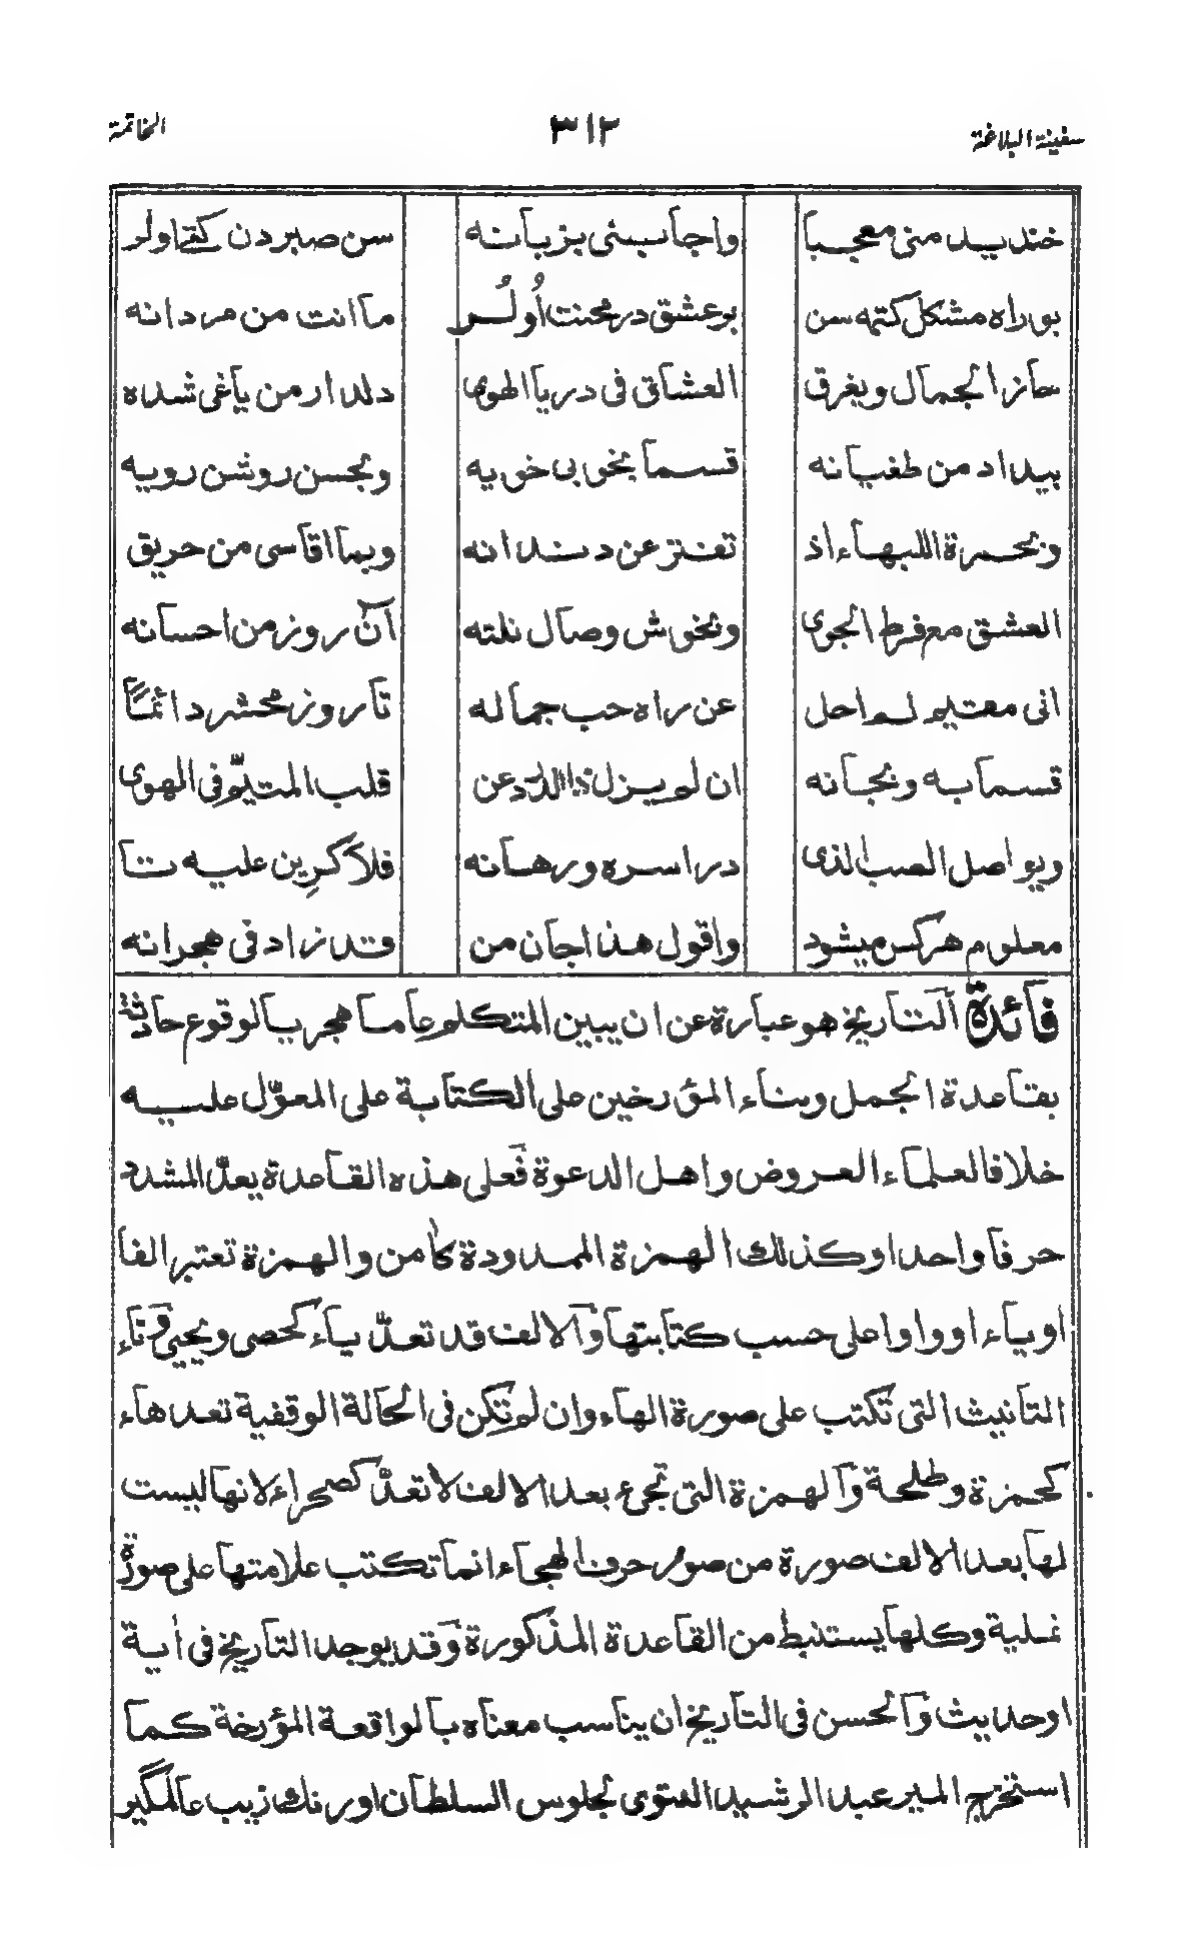 سفينة البلاغة ٣١٢ الخاتمة
خنديد منى معجبا واجابنى بزبانه سن صبردن كتے اولر
بو راه مشكل كتمه سن بو عشق در محنت اُولُر ما انت من مردانه
حاز الجمال ويغرق العشاق فى دريا الهوى دلدار من ياغى شده
بيداد من طغيانه قسما بخوبى خويه وبحسن روشن رويه
وبحمرة اللبهاء اذ تفتر عن دندانه وبما اقاسى من حريق
العشق مع فرط الجوى وبخوش وصال نلته آن روز من احسانه
انى مقتيم لم احل عن راه حب جماله تا روز محشر دائمًا
قسما به وبجانه ان لم يزل ذا الدّ عن قلب المتيّم فى الهوى
ويواصل الصب الذى در اسره ورهانه فلاكرِين عليه تا
معلوم هركس ميشود واقول هذا جان من قد زاد فى هجرانه
فائدة التاريخ هو عبارة عن ان يبين المتكلم عاما هجريا لوقوع حادثة
بقاعدة الجمل وبناء المؤرخين على الكتابة على المعوّل عليه
خلافا لعلماء العروض واهل الدعوة فعلى هذه القاعدة يعدّ المشدد
حرفا واحدا وكذلك الهمزة الممدودة كاٰمن والهمزة تعتبر الفا
او ياء او واوا على حسب كتابتها والالف قد تعدّ ياء كحصى ويحيى وتاء
التانيث التى تكتب على صورة الهاء وان لم تكن فى الحالة الوقفية تعد هاء
كحمزة وطلحة والهمزة التى تجىء بعد الالف لا تعدّ كصحراء لانها ليست
لها بعد الالف صورة من صور حرف الهجاء انما تكتب علامتها على صورة
نملية وكلها يستنبط من القاعدة المذكورة وقد يوجد التاريخ فى اٰية
او حديث والحسن فى التاريخ ان يناسب معناه بالواقعة المؤرخة كما
استخرج المير عبد الرشيد التتوى لجلوس السلطان اورنك زيب عالمگير